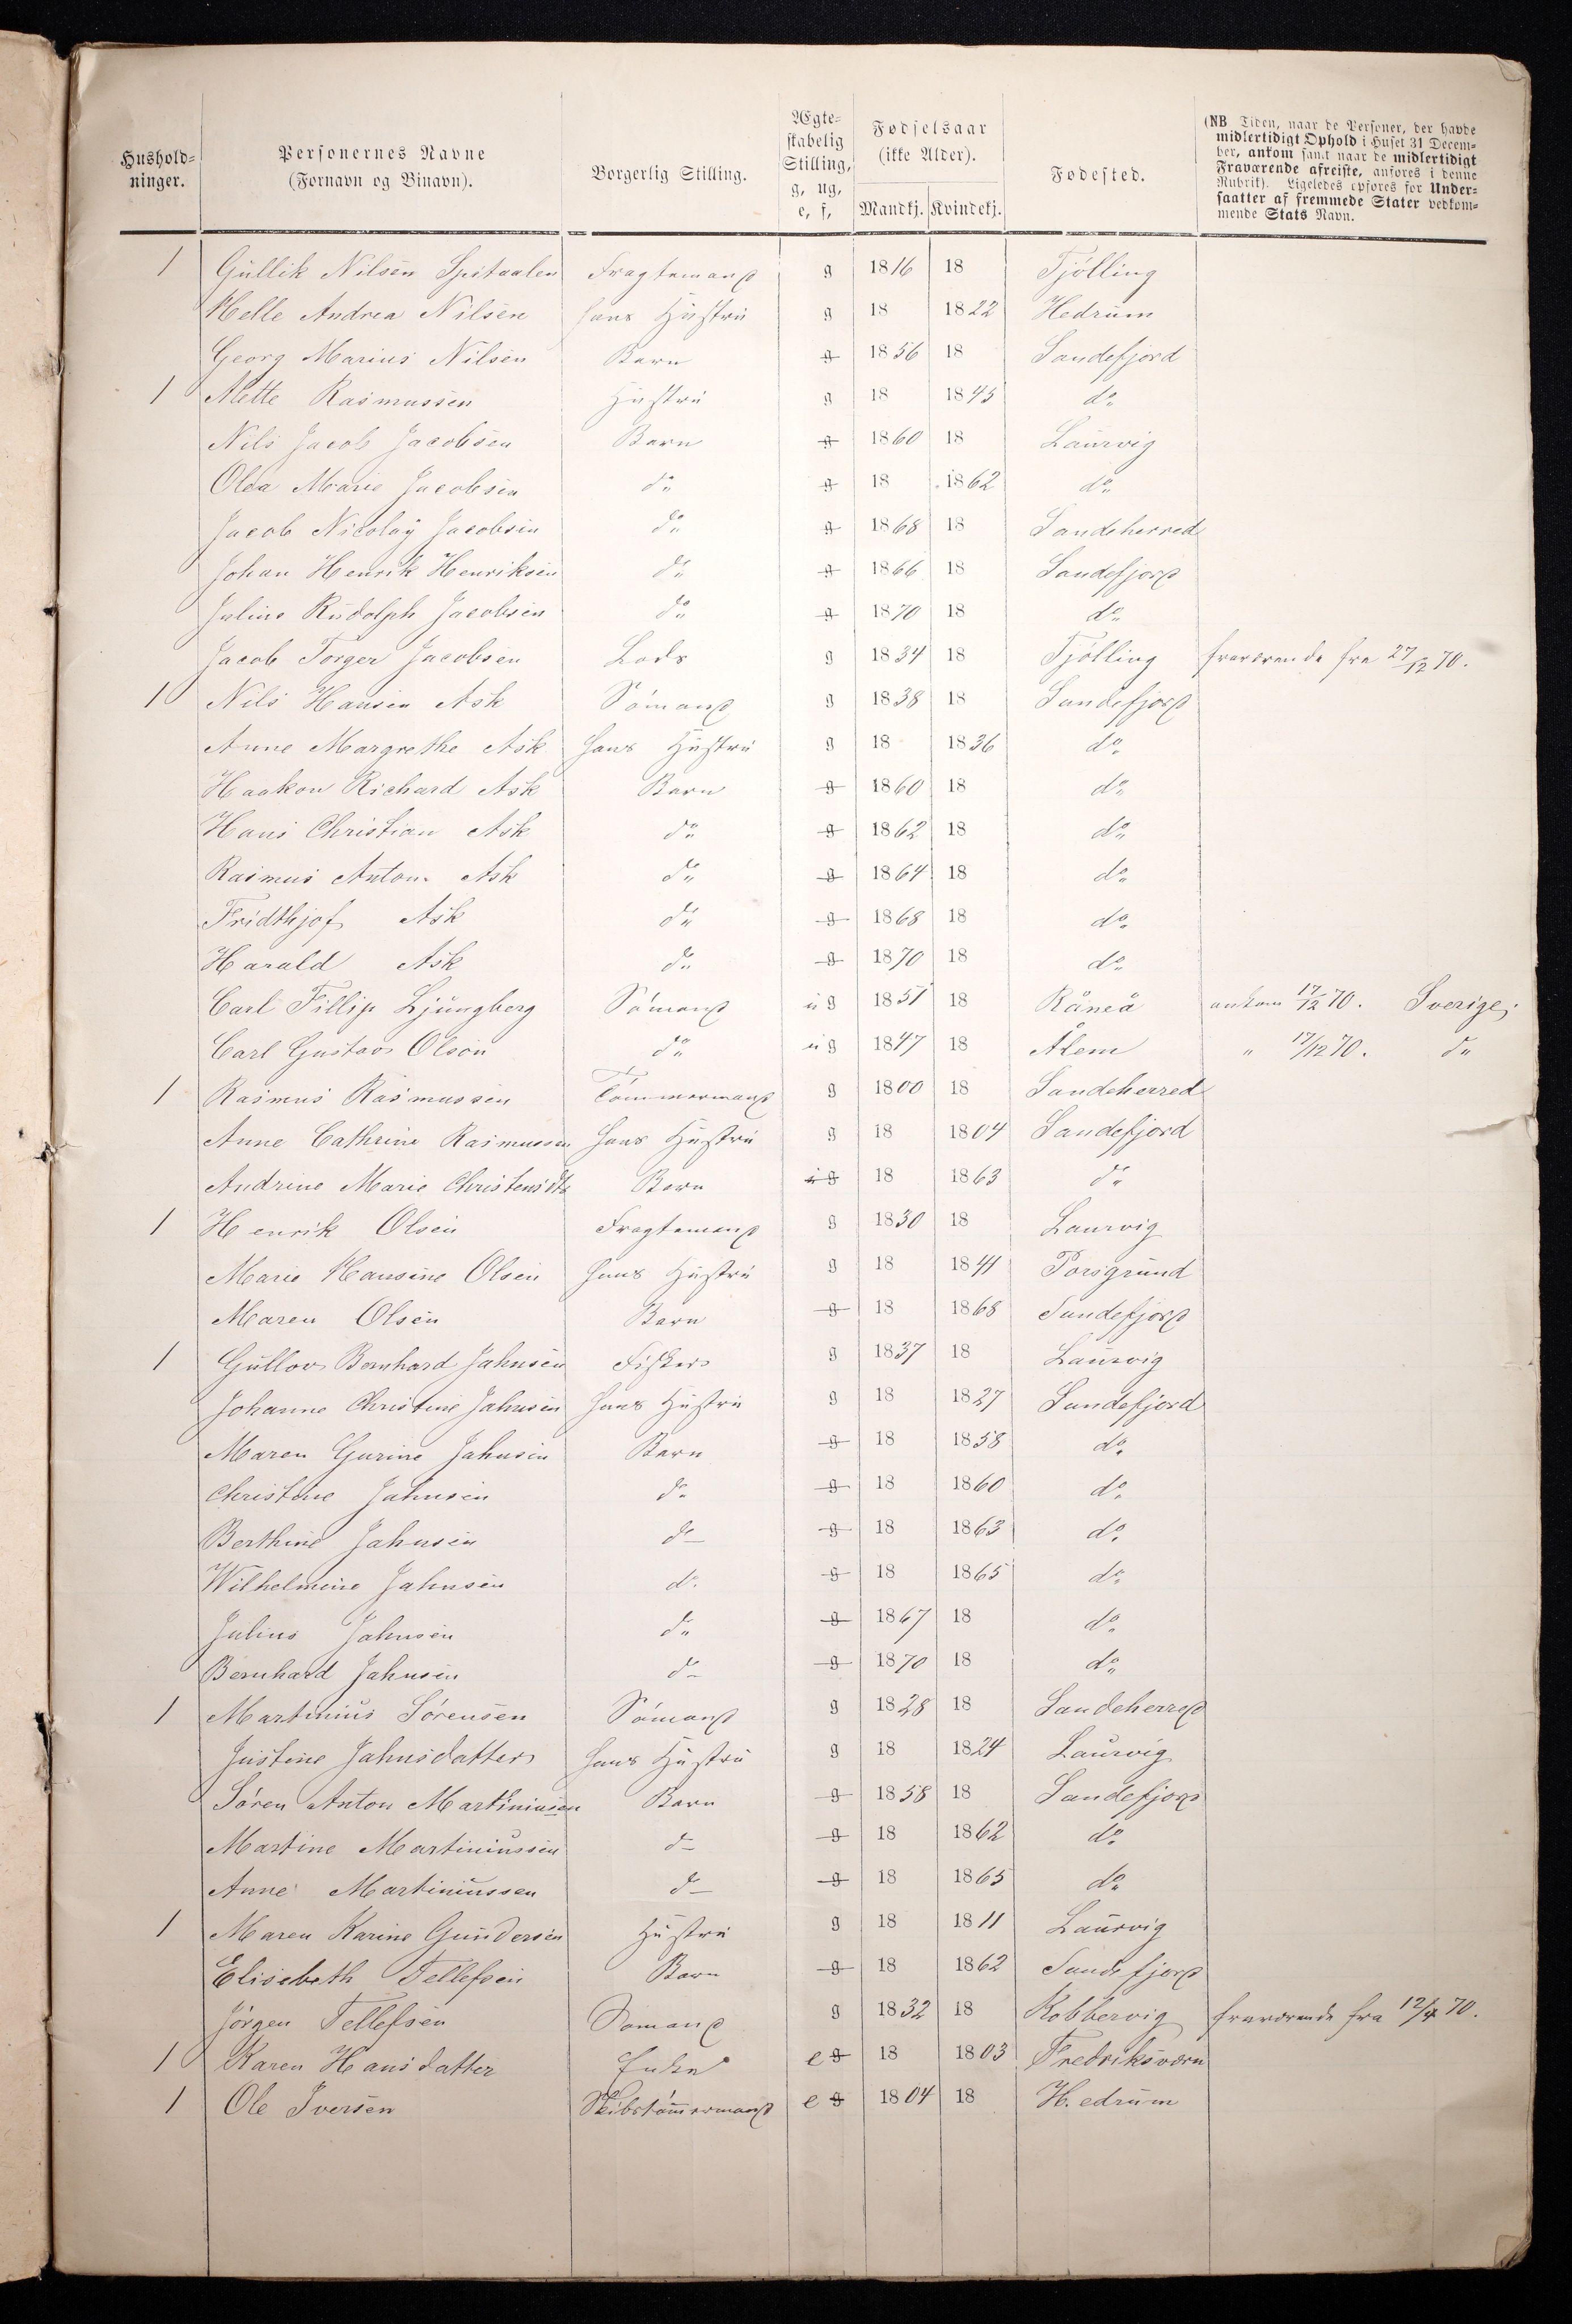 Hushold-
ninger.
Personernes Navne
(Fornavn og Binavn).
Borgerlig Stilling.
Ægte-
skabelig
Stilling,
g, ug,
e, f,
Fødselsaar
(ikke Alder).
Mandkj. Kvindekj.
Fødested.
(NB Tiden, naar de Personer, der havde
midlertidigt Ophold i Huset 31 Decem-
ber, ankom samt naar de midlertidigt
Fraværende afreiste, anføres i denne
Rubrik). Ligeledes opføres for Under-
saatter af fremmede Stater vedkom-
mende Stats Navn.
1 Gullik Nilsen Spitaalen Fragtemand g 1816 18 Tjölling
Helle Andrea Nilsen hans Hustru g 18 1822 Hedrum
Georg Marius Nilsen Barn g 1856 18 Sandefjord
1 Mette Rasmussen Hustru g 18 1845 do
Nils Jacob Jacobsen Barn g 1860 18 Laurvig
Olea Marie Jacobsen do g 18 1862 do
Jacob Nicolay Jacobsen do g 1868 18 Sandeherred
Johan Henrik Henriksen do g 1866 18 Sandefjord
Julius Rudolph Jacobsen do g 1870 18 do
Jacob Torger Jacobsen Lods g 1834 18 Tjölling fraværende fra 27/12 70.
1 Nils Hansen Ask Sömand g 1838 18 Sandefjord
Anne Margrethe Ask hans Hustru g 18 1836 do
Haakon Richard Ask Barn g 1860 18 do
Hans Christian Ask do g 1862 18 do
Rasmus Anton Ask do g 1864 18 do
Fridthjof Ask do g 1868 18 do
Harald Ask do g 1870 18 do
Carl Fillip Ljungberg Sömand ug 1851 18 Råneå ankom 17/12 70. Sverige.
Carl Gustav Olson do ug 1847 18 Ålem " 17/12 70. do
1 Rasmus Rasmussen Tömmermand g 1800 18 Sandeherred
Anne Cathrine Rasmussen hans Hustru g 18 1804 Sandefjord
Andrine Marie Christensdtr Barn ug 18 1863 do
1 Henrik Olsen Fragtemand g 1830 18 Laurvig
Marie Hansine Olsen hans Hustru g 18 1841 Porsgrund
Maren Olsen Barn g 18 1868 Sandefjord
1 Gullov Bernhard Jahnsen Fisker g 1837 18 Laurvig
Johanne Christine Jahnsen hans Hustru g 18 1827 Sandefjord
Maren Gurine Jahnsen Barn g 18 1858 do
Christine Jahnsen do g 18 1860 do
Berthine Jahnsen do g 18 1863 do
Wilhelmine Jahnsen do g 18 1865 do
Julius Jahnsen do g 1867 18 do
Bernhard Jahnsen do g 1870 18 do
1 Martinius Sörensen Sömand g 1828 18 Sandeherred
Justine Jahnsdatter hans Hustru g 18 1824 Laurvig
Sören Anton Martiniusen Barn g 1858 18 Sandefjord
Martine Martiniussen do g 18 1862 do
Anne Martiniussen do g 18 1865 do
1 Maren Karine Gundersen Hustru g 18 1811 Laurvig
Elisebeth Tellefsen Barn g 18 1862 Sandefjord
Jörgen Tellefsen Somand g 1832 18 Robbervig fraværende fra 12/4 70.
1 Karen Hansdatter Enke e g 18 1803 Fredriksværn
1 Ole Iversen Skibstömmermand e g 1804 18 Hedrum